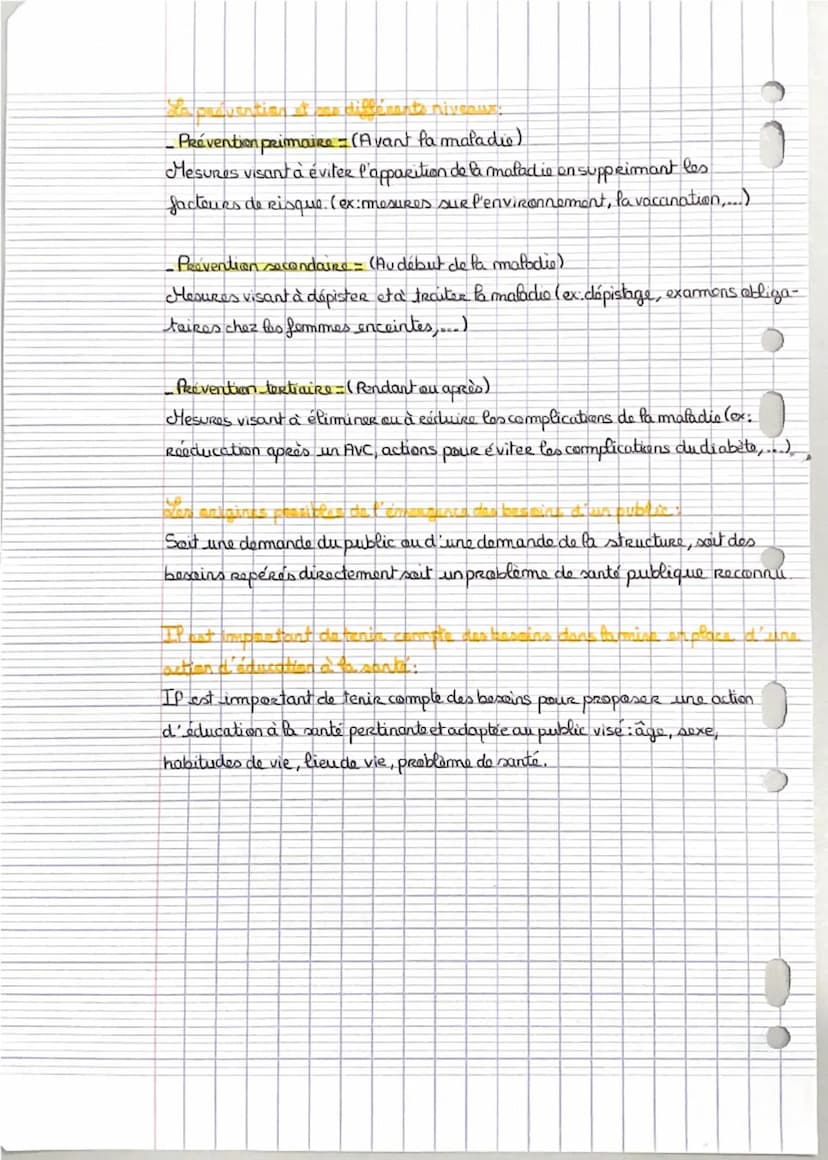 La prévention et ses différents niveaux:
_ Prévention primaire = (Avant la maladie)
Mesures visant à éviter l'apparition de la maladie en supprimant les
facteurs de risque. (ex: mesures sur l'environnement, la vaccination,...)
_ Prévention secondaire = (Au début de la maladie)
Mesures visant à dépister et à traiter la maladie (ex: dépistage, examens obliga-
toires chez les femmes enceintes,...)
_ Prévention tertiaire = (Pendant ou après)
Mesures visant à éliminer ou à réduire les complications de la maladie (ex:
Rééducation après un AVC, actions pour éviter les complications du diabète,...)
Les origines possibles de l'émergence des besoins d'un public:
Soit une demande du public ou d'une demande de la structure, soit des
besoins repérés directement soit un problème de santé publique reconnu
Il est important de tenir compte des besoins dans la mise en place d'une
action d'éducation à la santé:
Il est important de tenir compte des besoins pour proposer une action
d'éducation à la santé pertinante et adaptée au public visé: âge, sexe,
habitudes de vie, lieu de vie, problème de santé.